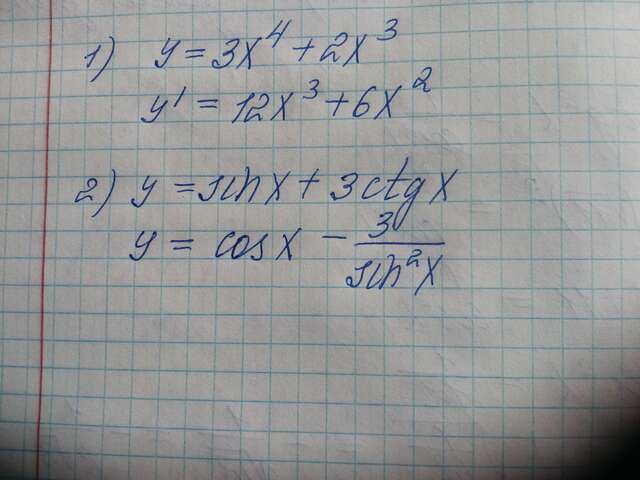 1) y = 3x⁴ + 2x³
y' = 12x³ + 6x²
2) y = sin x + 3ctg x
y = cos x - 3/sin²x